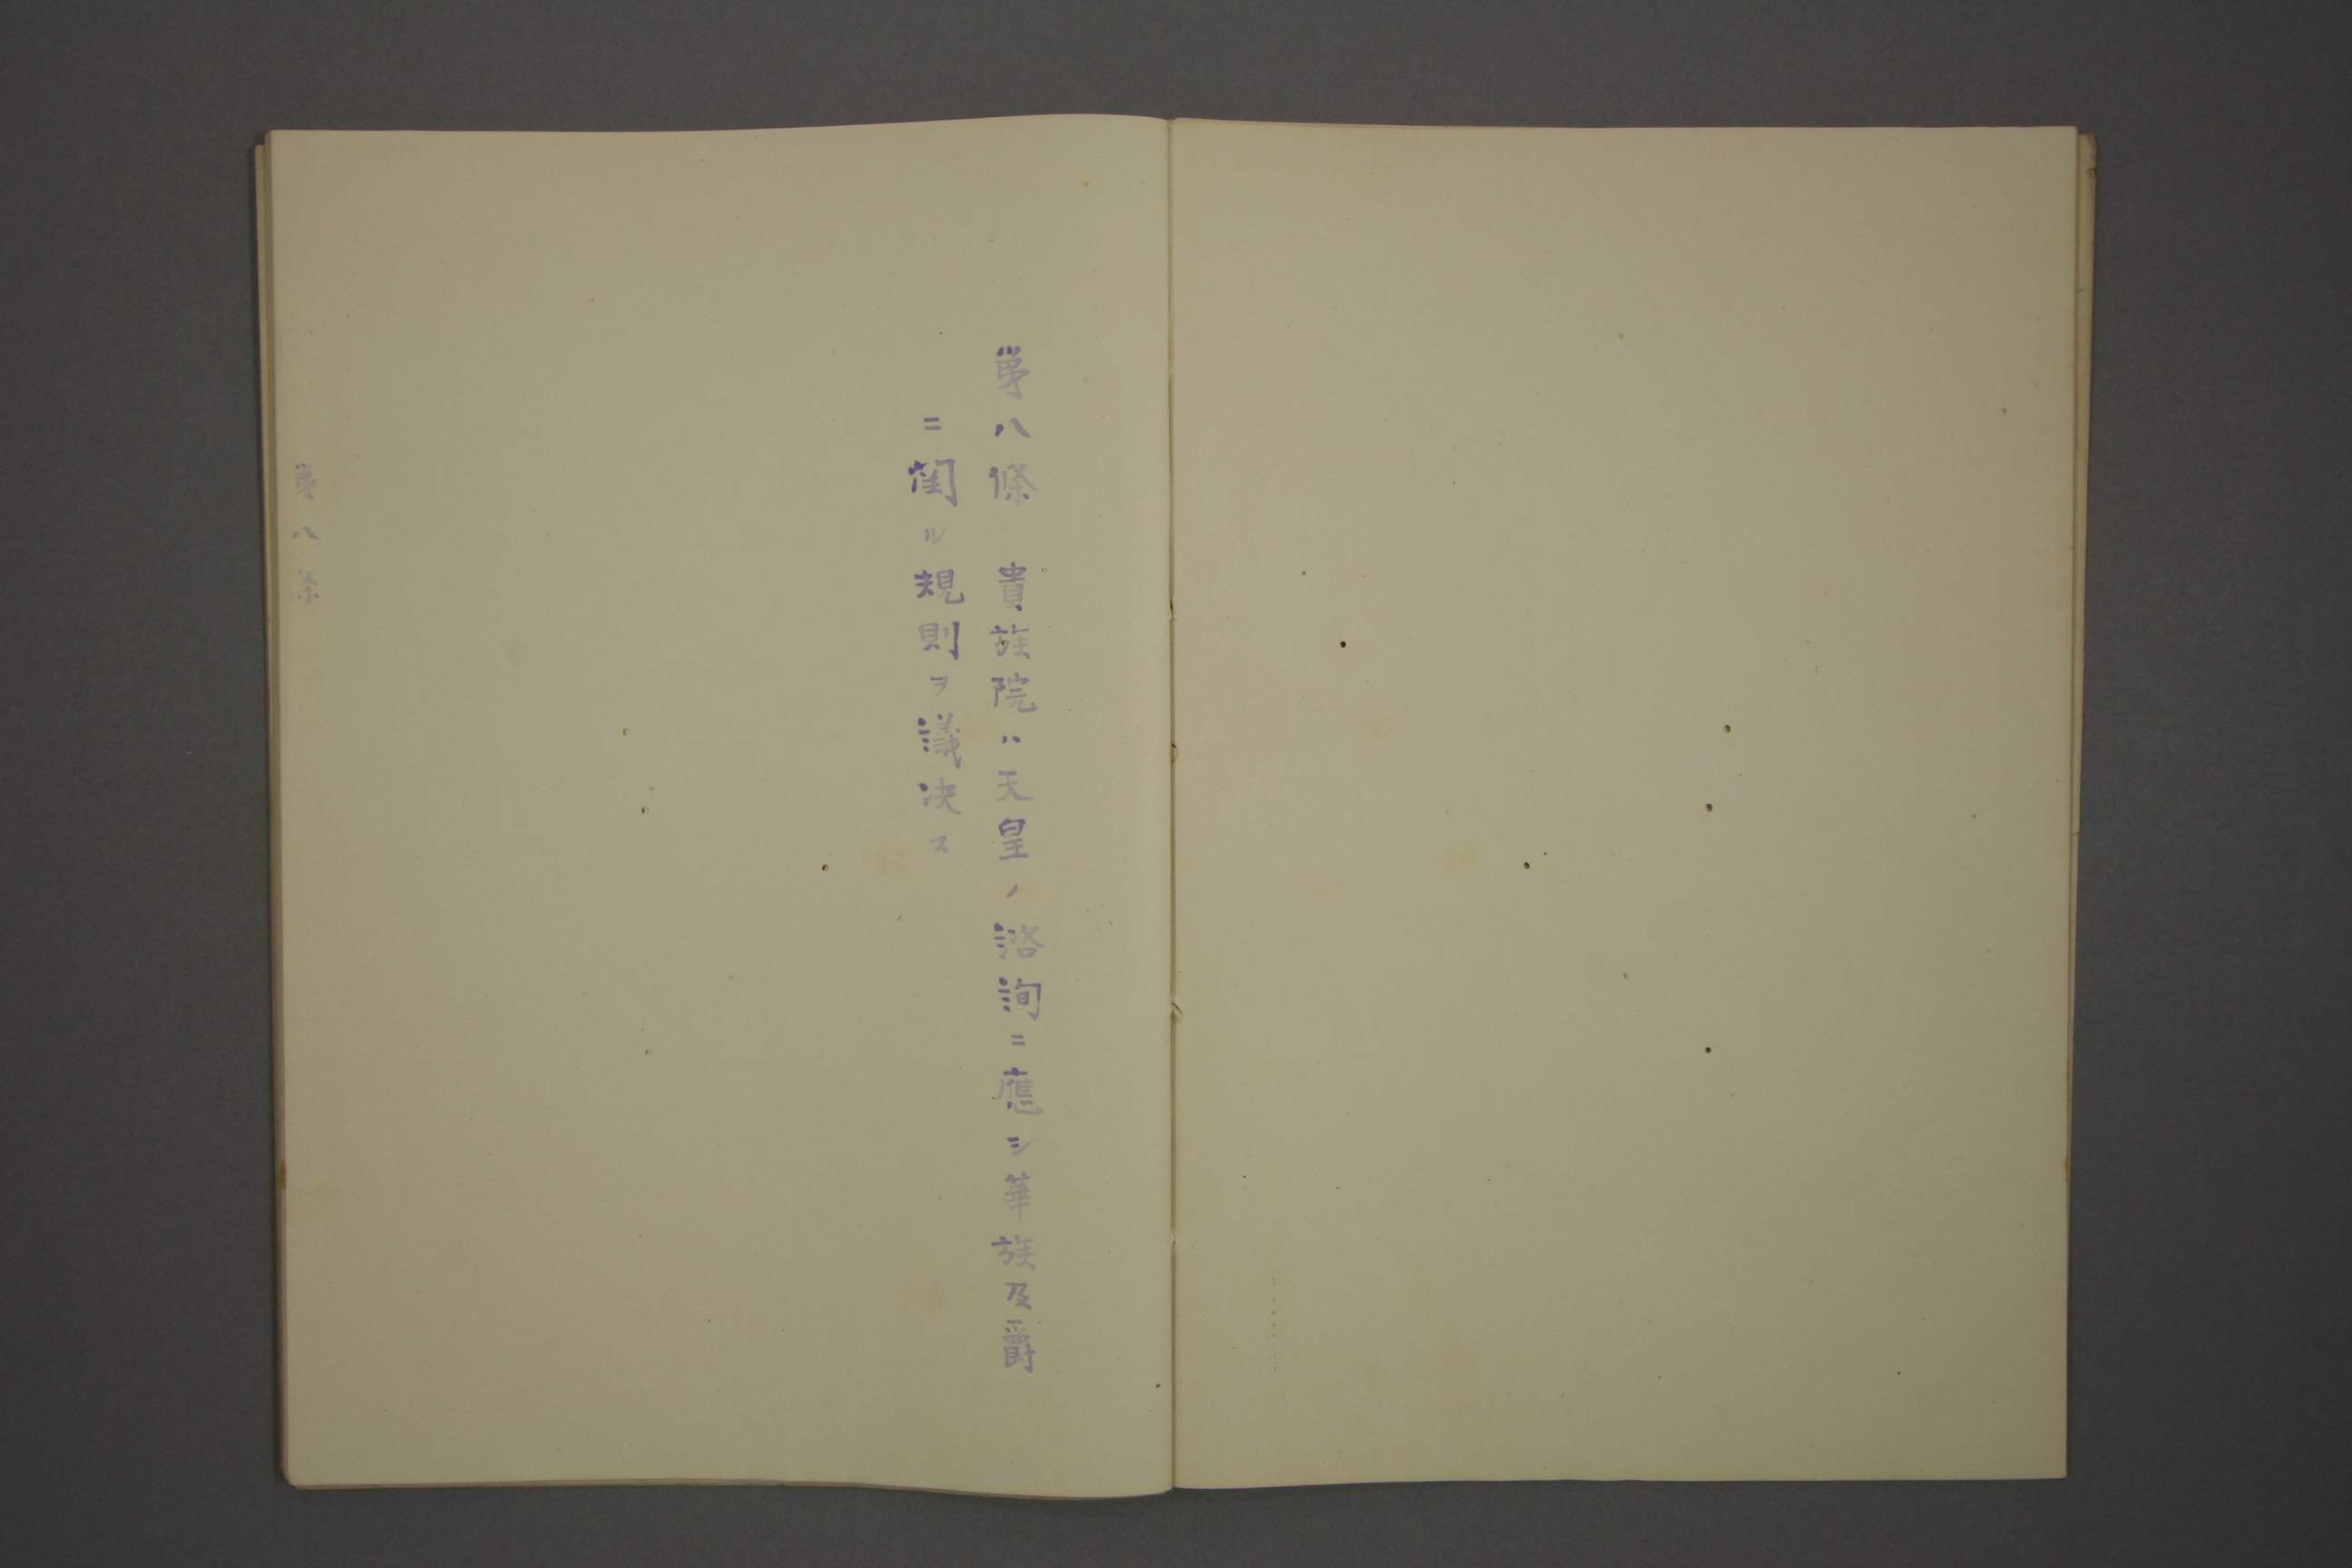 第八條　貴族院ハ天皇ノ諮詢ニ應シ華族及爵
ニ関ル規則ヲ議决ス
第八条